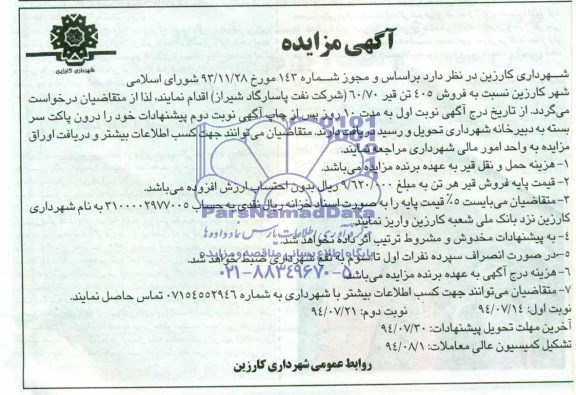 شهرداری کارزین
آگهی مزایده
شهرداری کارزین در نظر دارد براساس و مجوز شماره ۱۴۳ مورخ ۹۳/۱۱/۲۸ شورای اسلامی
شهر کارزین نسبت به فروش ۴۰۵ تن قیر ۶۰/۷۰ (شرکت نفت پاسارگاد شیراز) اقدام نمایند، لذا از متقاضیان درخواست
می‌گردد. از تاریخ درج آگهی نوبت اول به مدت ۱۰ روز پس از چاپ آگهی نوبت دوم پیشنهادات خود را درون پاکت سر
بسته به دبیرخانه شهرداری تحویل و رسید دریافت دارند. متقاضیان می‌توانند جهت کسب اطلاعات بیشتر و دریافت اوراق
مزایده به واحد امور مالی شهرداری مراجعه نمایند.
۱- هزینه حمل و نقل قیر به عهده برنده مزایده می‌باشد.
۲- قیمت پایه فروش قیر هر تن به مبلغ ۹/۶۲۰/۰۰۰ ریال بدون احتساب ارزش افزوده می‌باشد.
۳- متقاضیان می‌بایست ۵٪ قیمت پایه را به صورت اسناد خزانه ریال نقدی به حساب ۳۱۰۰۰۰۲۹۷۷۰۰۵ به نام شهرداری
کارزین نزد بانک ملی شعبه کارزین واریز نمایند.
ParsNamadData
۴- به پیشنهادات مخدوش و مشروط ترتیب اثر داده نخواهد شد.
پایگاه اطلاع رسانی مناقصه و مزایده
۵- در صورت انصراف سپرده نفرات اول تا سوم به نفع شهرداری ضبط خواهد شد.
۰۲۱-۸۸۳۴۹۶۷۰-۵
۶- هزینه درج آگهی به عهده برنده مزایده می‌باشد.
۷- متقاضیان می‌توانند جهت کسب اطلاعات بیشتر با شهرداری به شماره ۰۷۱۵۴۵۵۲۹۴۶ تماس حاصل نمایند.
نوبت اول: ۹۴/۰۷/۱۴ نوبت دوم: ۹۴/۰۷/۲۱
آخرین مهلت تحویل پیشنهادات: ۹۴/۰۷/۳۰
تشکیل کمیسیون عالی معاملات: ۹۴/۰۸/۱
روابط عمومی شهرداری کارزین